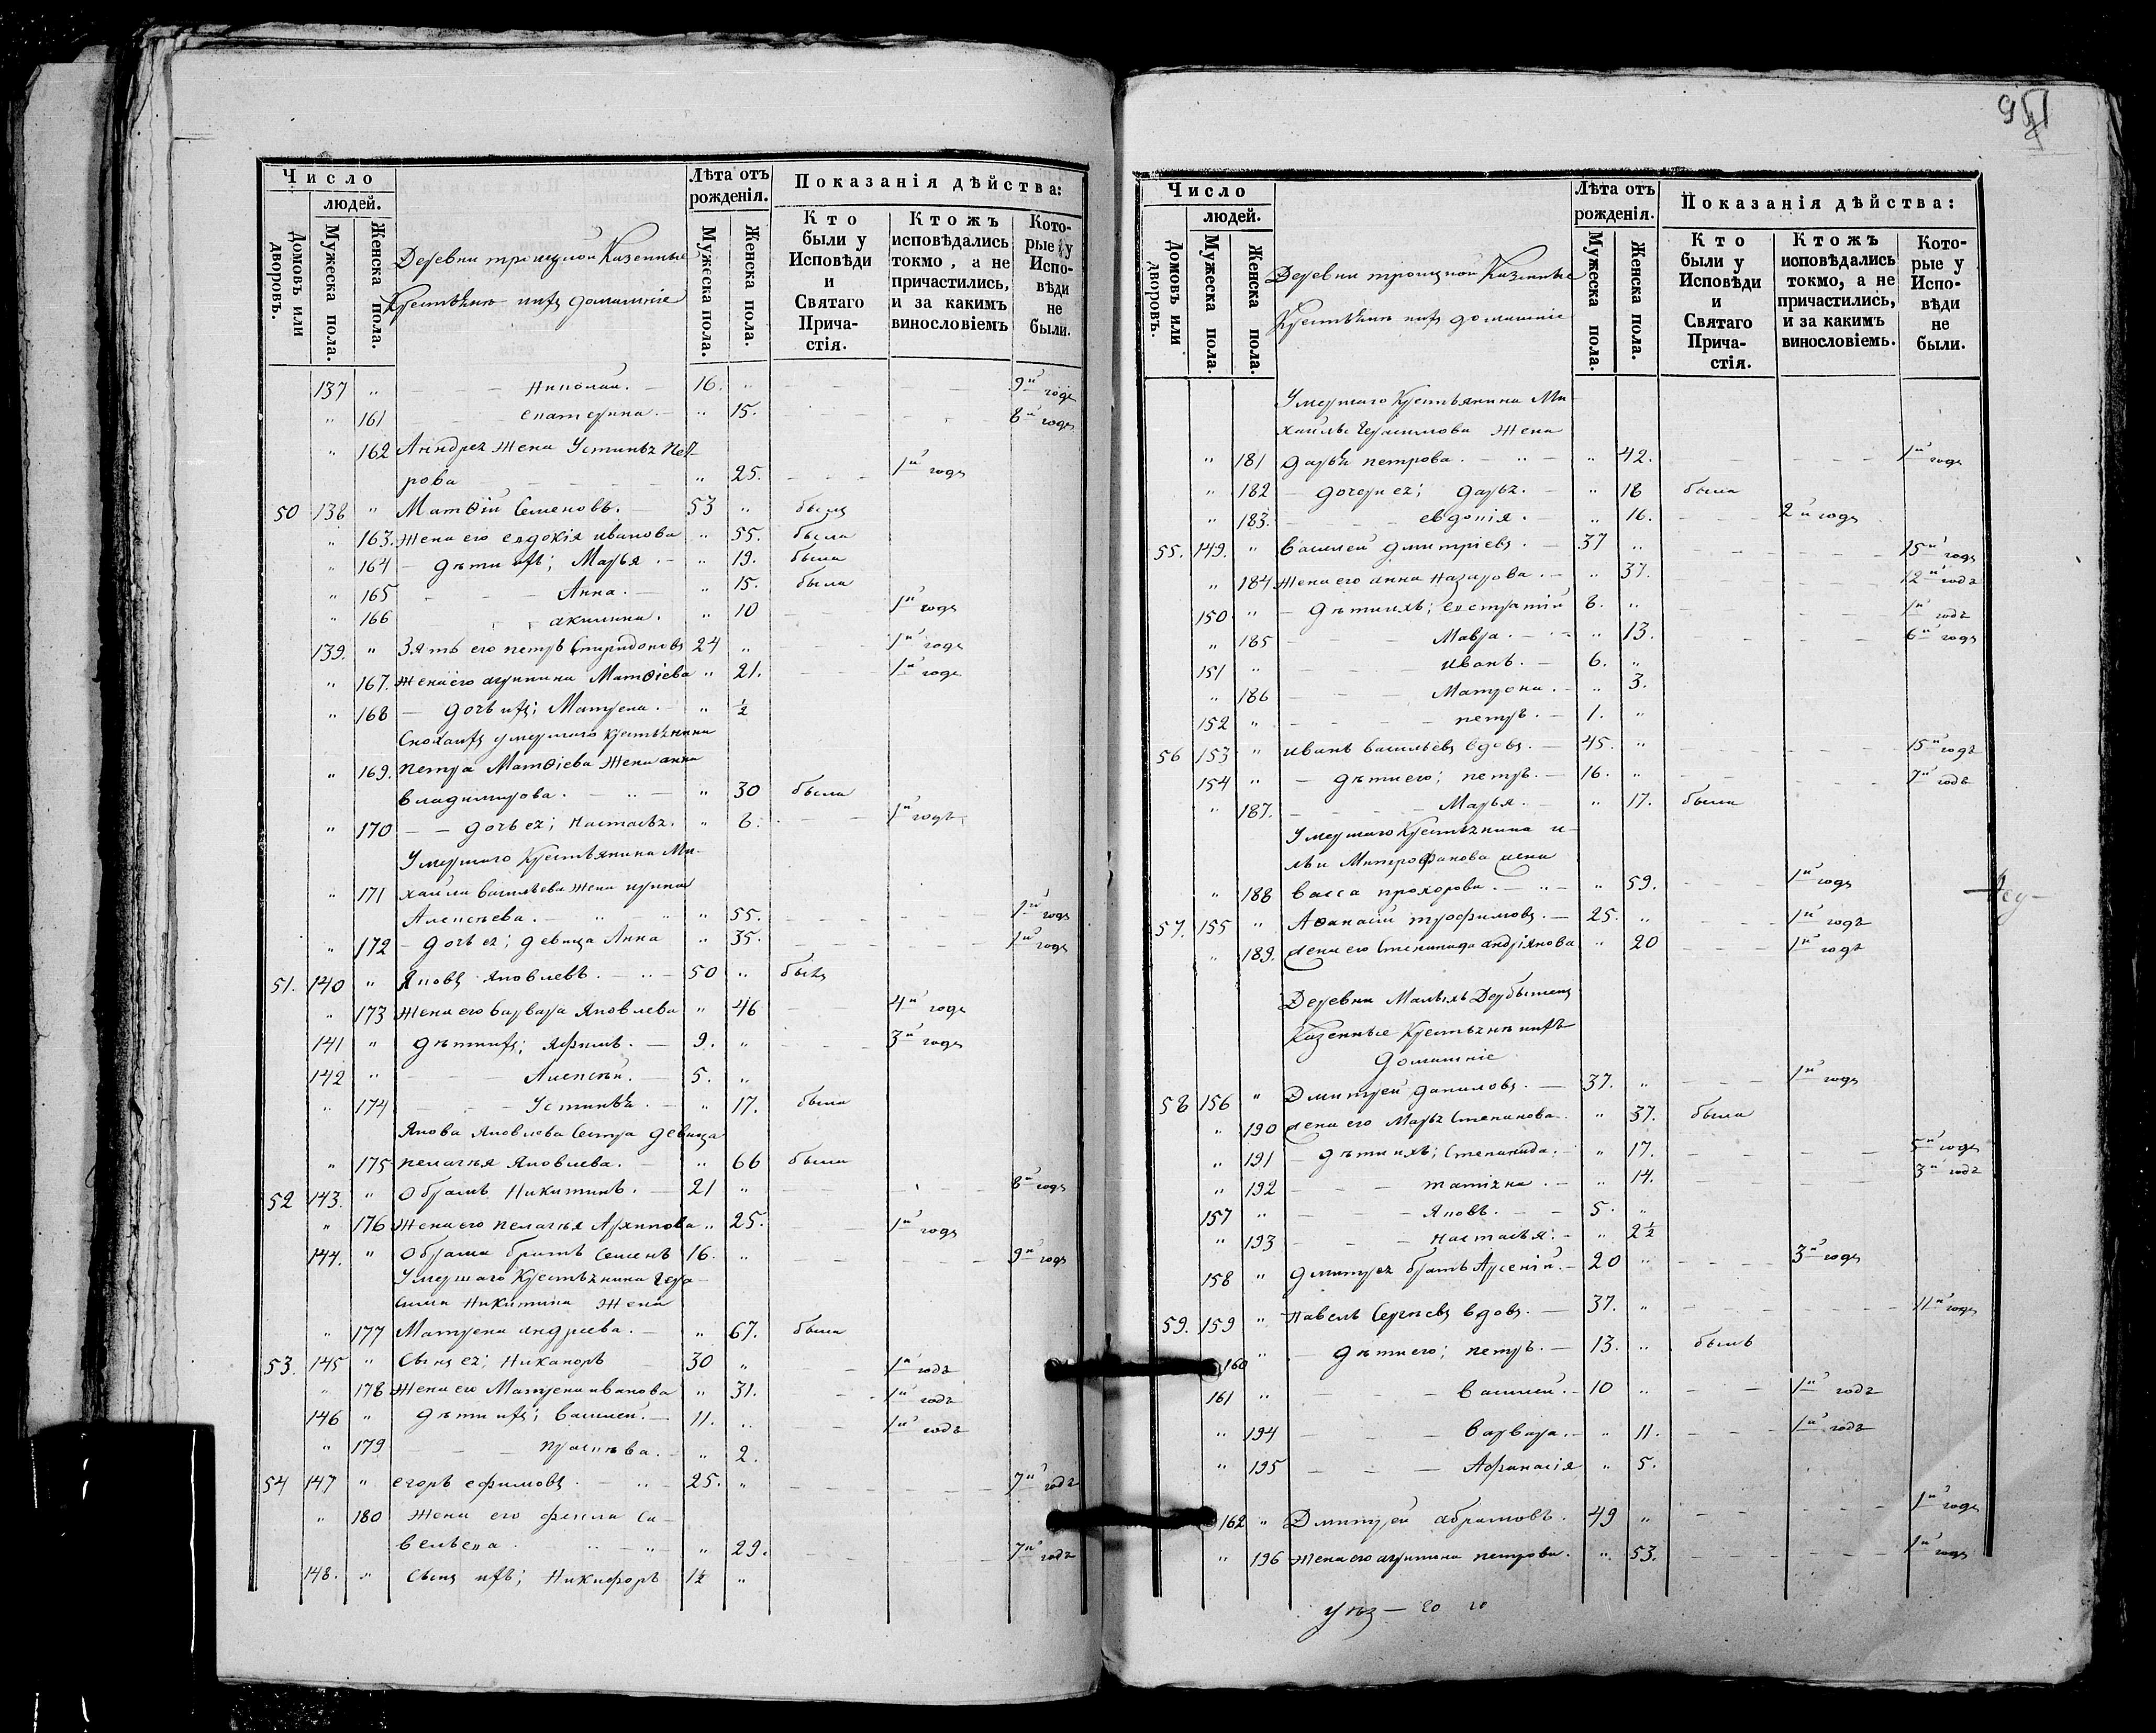 Число
людей.
Домовъ или дворовъ.
Мужеска пола.
Женска пола.
Деревни Троицкой Казенные
Крестьяне ихъ домашніе
Лѣта отъ рожденія.
Мужеска пола.
Женска пола.
Показанія дѣйства:
Кто были у Исповѣди и Святаго Причастія.
Ктожъ исповѣдались токмо, а не причастились, и за какимъ винословіемъ
Которые у Исповѣди не были.
137 " — — — Николай. — 16. " — — — 9й годъ
" 161 Екатерина. — " 15. — — 8й годъ
" 162 Андрея Жена Устинья Пет-
рова — — — " 25. — — — 1й годъ
50 138 " Матѳій Семеновъ. — 53 " былъ
" 163. Жена его Евдокія Иванова " 55. была
" 164 — дѣти ихъ; Марья — " 19. была
" 165 — — Анна. — " 15. была
" 166 — — Акилина. " 10 — 1й годъ
139. " Зять его Петръ Спиридоновъ 24 " — — — 1й годъ
" 167. Жена его Агрипина Матѳіева " 21. — — 1й годъ
" 168 — дочь ихъ; Матрена. — " ½
Сноха ихъ умершаго крестьянина
" 169. Петра Матѳіева Жена Анна
Владимирова. — " — " 30 была
" 170 — — дочь ея; Настасья. " 8. — — 1й годъ
Умершаго Крестьянина Ми-
" 171 хаила Васильева Жена Ирина
Алексѣева. — " " " 55. — — — 1й годъ
" 172 — дочь ея; девица Анна " 35. — — — 1й годъ
51. 140 " Яковъ Яковлевъ. — " — 50 " былъ
" 173 Жена его Варвара Яковлева " 46 — 4й годъ
141 " дѣти ихъ; Яфимъ. — 9. " — — — 3й годъ
142 " — — — Алексѣй. — 5. "
" 174 — — — Устинья. — " 17. была
Якова Яковлева Сестра девица
" 175 Пелагѣя Яковлева. — " 66 была
52 143. " Обрамъ Никитинъ. — 21 " — — — 8й годъ
" 176 Жена его Пелагѣя Архипова " 25. — 1й годъ
144. " Обрама братъ Семенъ 16. " — — — 9й годъ
Умершаго Крестьянина Гера-
сима Никитина Жена
" 177 Матрена Андреева. — " 67. была
53. 145 " Сынъ ея; Никаноръ 30 " — 1й годъ
" 178 Жена его Матрена Иванова " 31. — 1й годъ
146 " дѣти ихъ; Василей. — 11. " — 1й годъ
" 179 — — — — " 2.
54 147 " Егоръ Ефимовъ. — " — 25. " — — — 7й годъ
" 180 Жена его Фекла Са-
вельева. " — " — " 29. — — — 7й годъ
148. " Сынъ ихъ; Никифоръ 1½ "
Число
людей.
Домовъ или дворовъ.
Мужеска пола.
Женска пола.
Деревни Троицкой Казенные
Крестьяне ихъ домашніе
Лѣта отъ рожденія.
Мужеска пола.
Женска пола.
Показанія дѣйства:
Кто были у Исповѣди и Святаго Причастія.
Ктожъ исповѣдались токмо, а не причастились, и за какимъ винословіемъ.
Которые у Исповѣди не были.
Умершаго Крестьянина Ми-
хаилы Герасимова Жена
" 181 Дарья Петрова. — " — " 42. — — — 1й годъ
" 182 — дочери ея; Дарья. — " 18 была
" 183. — — — Евдокія. — " 16. — — 2й годъ
55. 149. " Василей Дмитріевъ. — 37 " — — — 15й годъ
" 184 Жена его Анна Назарова. — " 37. — — — 12й годъ
150 " — дѣти ихъ; Евстратій 8. " — — — 1й годъ
" 185 — — Мавра. — " 13. — — — 6й годъ
151 " Иванъ. — 6. "
" 186 — — — Матрона. — " 3.
152 " — — — Петръ. — 1. "
56 153 " Иванъ Васильевъ вдовъ. — 45. " — — — 15й годъ
154 " — дѣти его; Петръ. — 16. " — — — 7й годъ
" 187. — — — Марья. — " 17. была
Умершаго Крестьянина И-
льи Митрофанова жена
" 188 Васса Прохорова. — " — " 59. — — — 1й годъ
57. 155 " Аѳанасій Трофимовъ. — 25. " — — — 1й годъ
" 189. Жена его Степанида Андріянова " 20 — — — 1й годъ
Деревни Малыхъ Дербышекъ
Казенные Крестьяне ихъ
Домашніе
58 156 " Дмитрей Даниловъ. — 37. " — — — 1й годъ
" 190 Жена его Марья Степанова. " 37. была
" 191 — дѣти ихъ; Степанида. — " 17. — — — 5й годъ
" 192 — — — Татіяна. — " 14. — — 3й годъ
157 " — — — Яковъ. — — 5. "
" 193 — — — Настасья. — " 2½
158 " Дмитрея братъ Арсеній. — 20 " — — — 3й годъ
59. 159 " Павелъ Сергѣевъ вдовъ. — 37. " — — — 11й годъ
160 " — дѣти его; Петръ. — 13. " былъ
161 " — — — Василей. — 10 " — — 1й годъ
" 194 — — — Варвара. — " 11. — — — 1й годъ
" 195 — — — Афанасія " 5.
162 " Дмитрей Абрамовъ. 49 " — — — 1й годъ
" 196 Жена его Агрипина Петрова. " 53. — — — 1й годъ